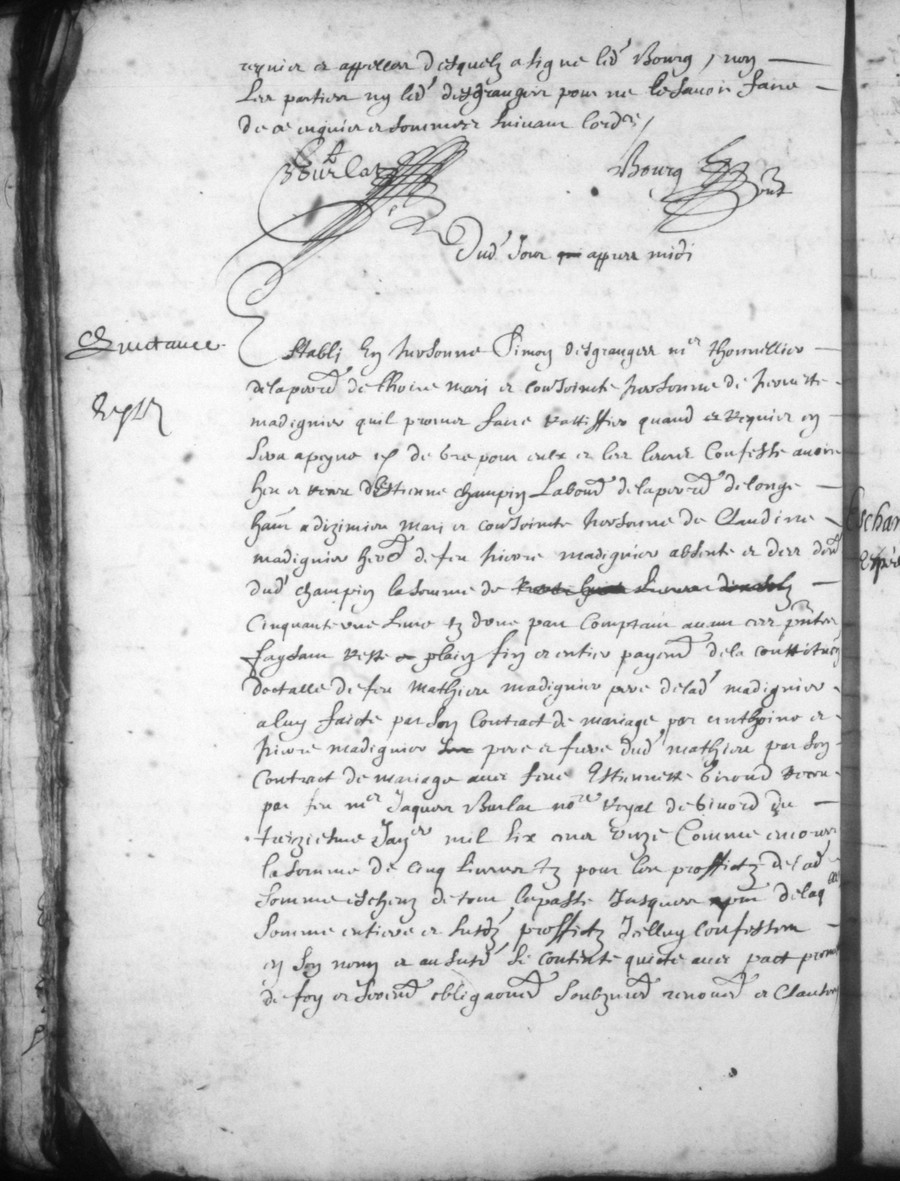 requier et appeller desquelz a signe led Bourg, non
les parties ny led desgranges pour ne le scavoir faire
de ce enquier et sommees suivant lorde
Burlat
Bourg
Dud Jour appres midi
Quictance
Establi En personne Simon desgranges me thonnellier
de la parred de mari et conjoincte personne de pernette
madignier quil promet faire rattiffier quand et Requier en
sera a peyne et de vre pour eulx et les leurs Confesse avoir
heu et receu dEstienne champin Labourd de la parred de longe
a dizimieu mari et conjoincte personne de Claudine
madignier herd de feu pierre madignier absente et des den
dud champin la somme de
Cinquante une livre tz donc par comptant avant ces pntes
faysant reste plain fin et entier payemd de la constitucn
doctalle de feu Mathieu madignier pere de lad madignier
a luy faicte par son Contract de mariage par anthoine et
pierre madignier pere et frere dud mathieu par son
Contract de mariage avec feue Estiennette Giroud receu
par feu me Jaques Burlat nore royal de Givord du
treiziesme Janer mil six cens unze Comme encores
la somme de cinq livres tz pour les proffictz de lad
somme escheuz de tout le passe Jusques de laq
somme entiere et susd proffictz Icelluy Confessent
en son nom et au susd se contente quicte avec pact
de foy et sermd obligaoned soubzmid renond et Clauses